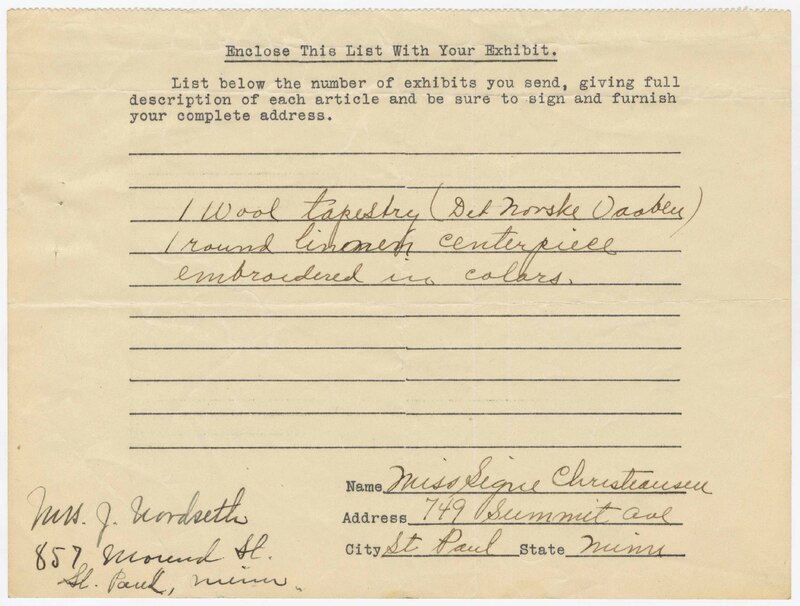 Enclose This List With Your Exhibit.
List below the number of exhibits you send, giving full
description of each article and be sure to sign and furnish
your complete address.
1 Wool tapestry (Det Norske Vaaben)
1 round linnen centerpiece
embroidered in colors.
Name Miss Signe Christiansen
Address 749 Summit Ave
City St Paul State Minn
Mrs. J. Nordseth
857 Mound St.
St. Paul, Minn.